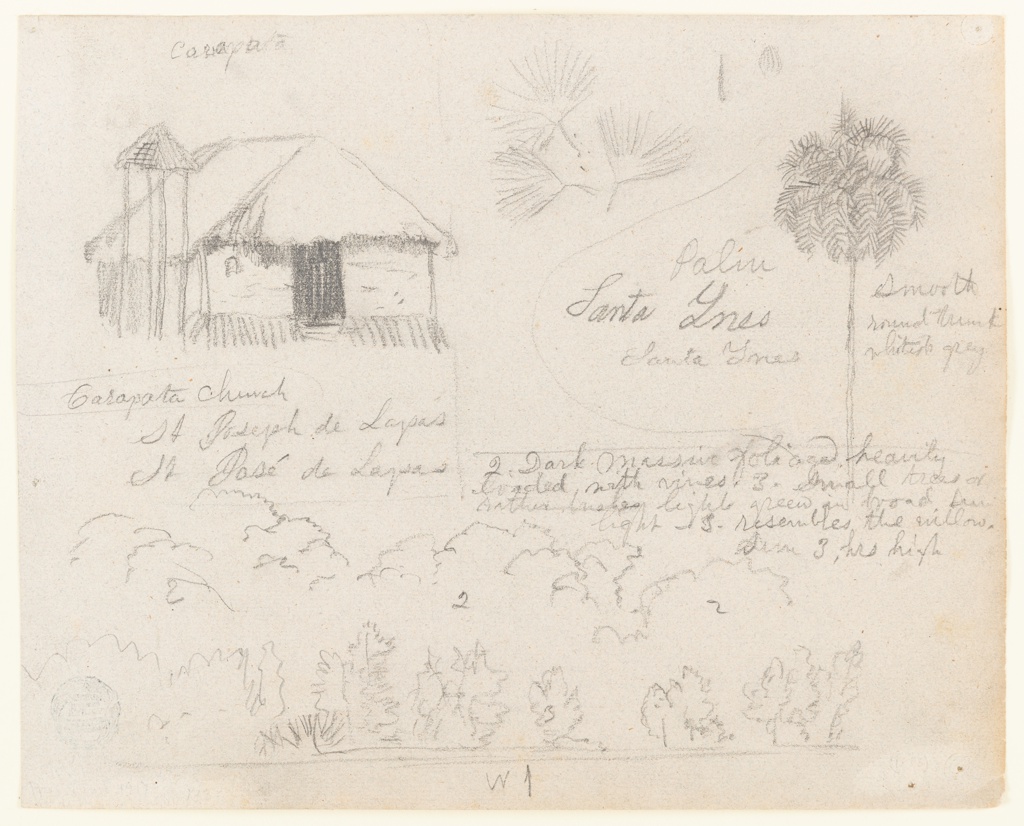 Carapata
Palm
Santa Ynes
Santa Ynes
Smooth
round trunk
whitish grey
Carapata Church
St Joseph de Lapas
St José de Lapas
2. Dark massive foliage heavily
loaded with vines. 3. Small trees or
rather bushes light green in broad sun
light - 3. resembles the willow.
Sun 3, hrs high
2
2
2
3
W 1